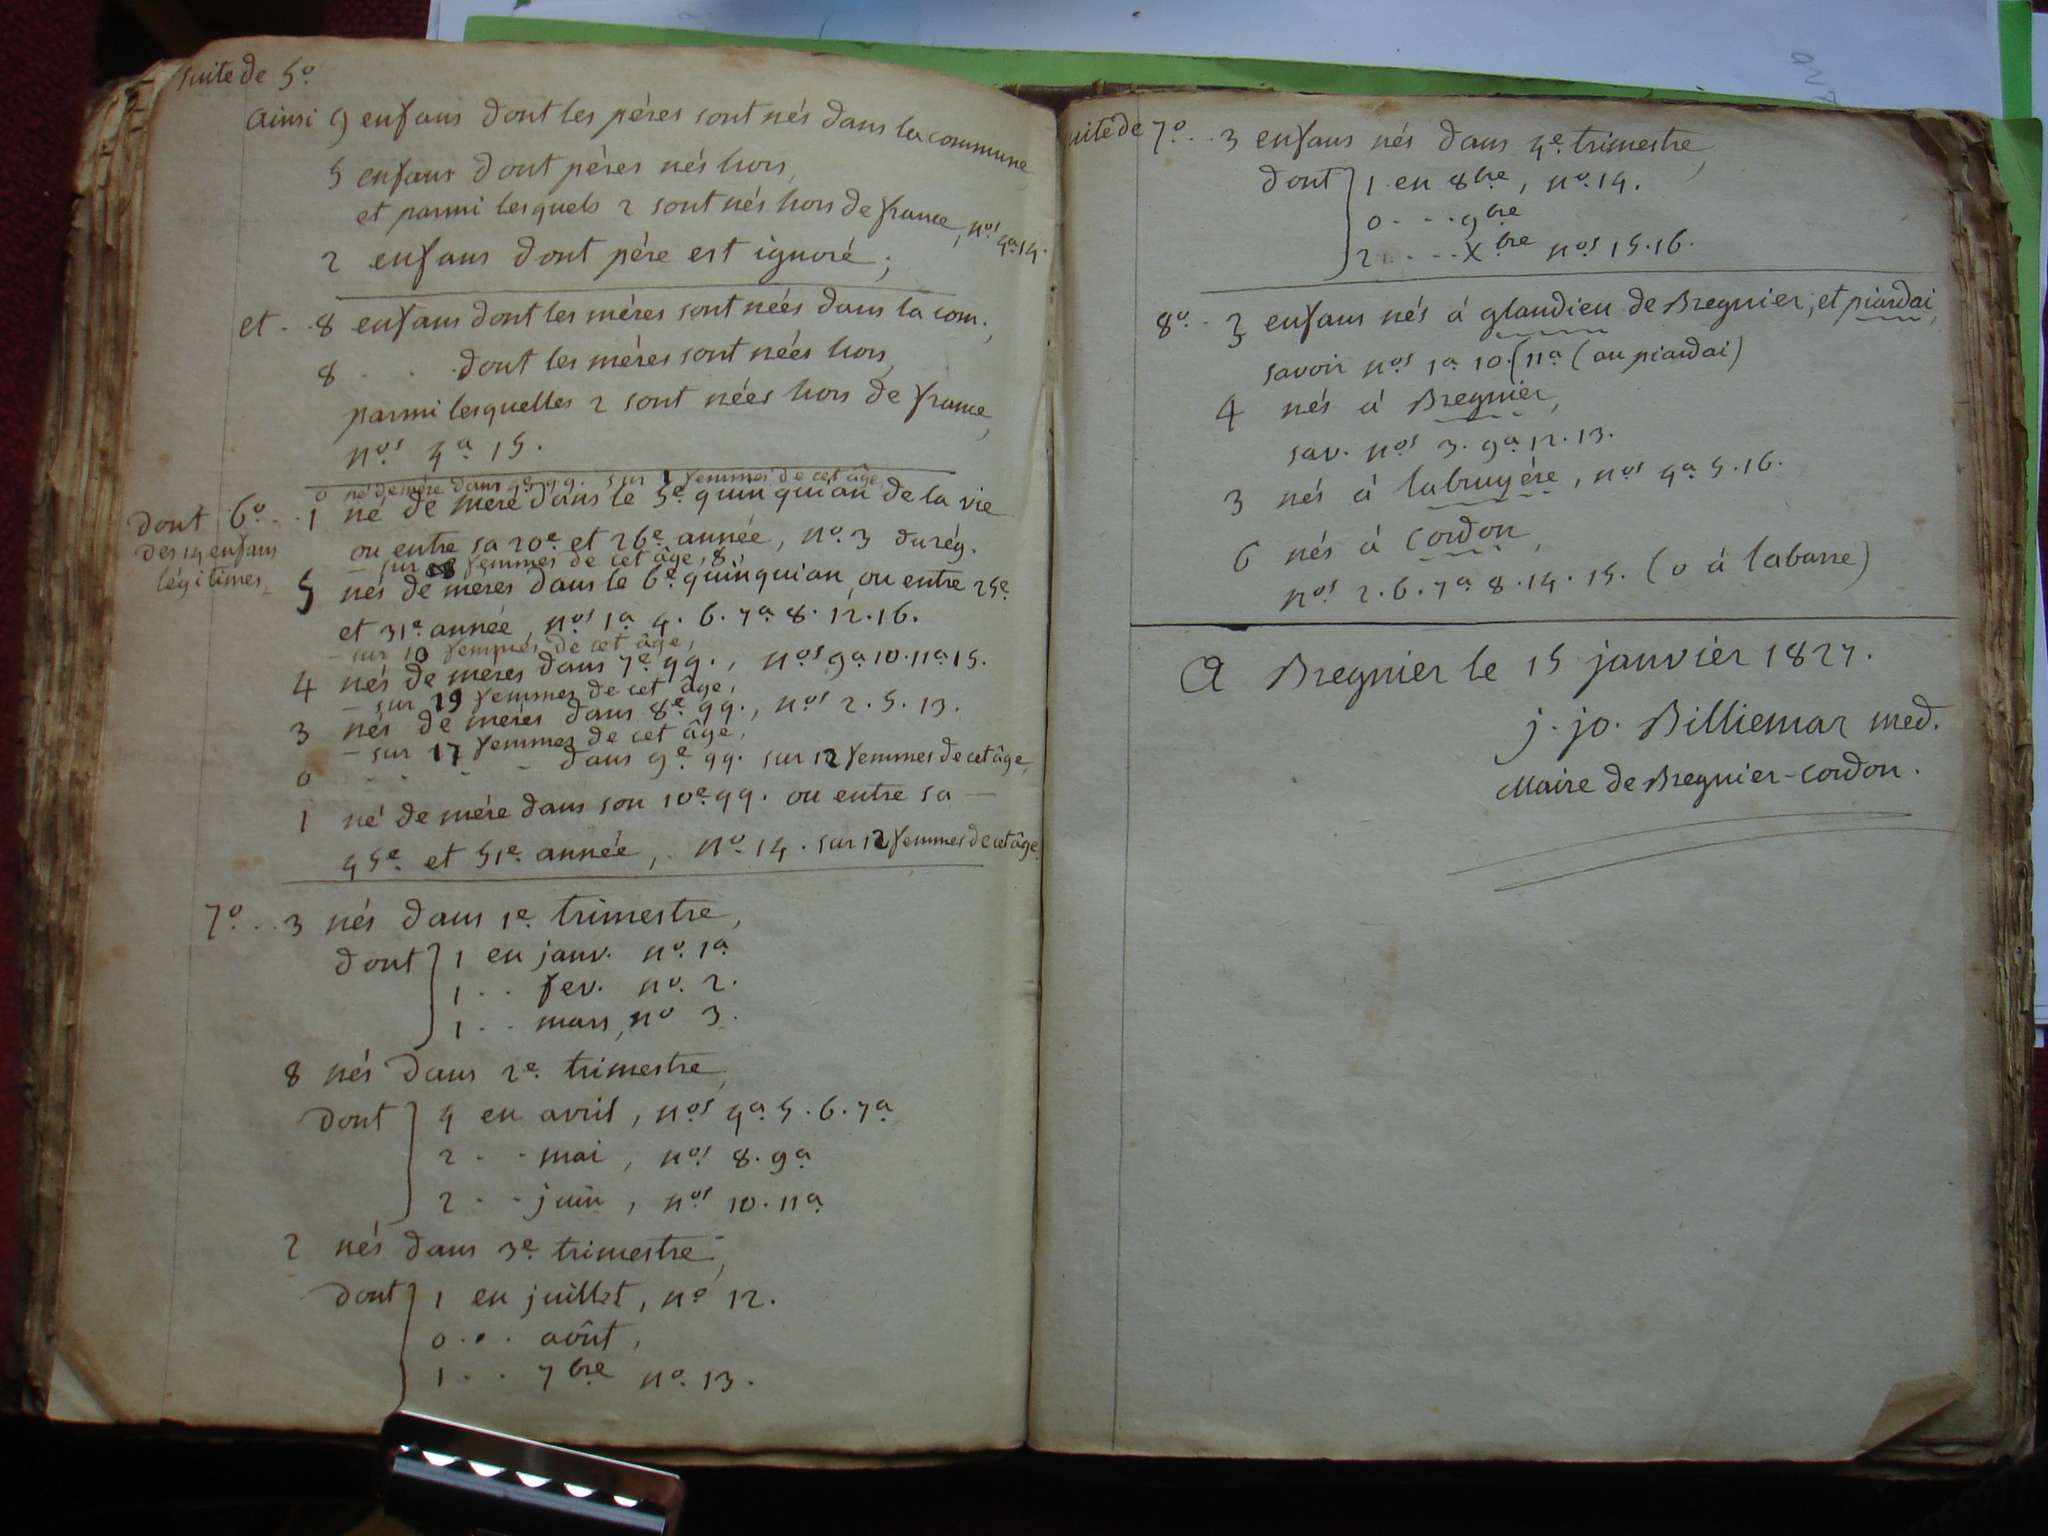 suite de 5º
ainsi 9 enfans dont les péres sont nés dans la commune,
5 enfans dont péres nés hors,
et parmi lesquels 2 sont nés hors de france, nos 4a 14.
2 enfans dont pére est ignoré;
et . . 8 enfans dont les méres sont nées dans la com.,
8 . . . dont les méres sont nées hors,
parmi lesquelles 2 sont nées hors de france,
nos 4a 15.
0 né de mére dans 4e qq. sur 1 femmes de cet âge,
dont 6º . . 1 né de mére dans le 5e quinquian de la vie
des 14 enfans
légitimes,
ou entre sa 20e et 26e année, no. 3 du rég.
– sur femmes de cet âge, 8,
5 nés de méres dans le 6e quinquian, ou entre 25e
et 31e année, nos 1a 4. 6. 7a 8. 12. 16.
– sur 10 femmes de cet âge,
4 nés de méres dans 7e qq., nos 9a 10. 11a 15.
– sur 19 femmes de cet âge,
3 nés de méres dans 8e qq., nos 2. 5. 13.
– sur 17 femmes de cet âge,
0 - - - - dans 9e qq. sur 12 femmes de cet âge,
1 né de mére dans son 10e qq. ou entre sa —
45e et 51e année, no. 14. sur 12 femmes de cet âge.
7º . . 3 nés dans 1e trimestre,
dont } 1 en janv. no. 1a
1 . . fev. no. 2.
1 . . mars, no 3.
8 nés dans 2e trimestre,
dont } 4 en avril, nos 4a 5. 6. 7a
2 . . mai, nos 8. 9a
2 . . juin, nos 10. 11a
2 nés dans 3e trimestre,
dont } 1 en juillet, no 12.
0 . . . août,
1 . . 7bre no. 13.
suite de 7º . . 3 enfans nés dans 4e trimestre,
dont } 1 en 8bre, no. 14.
0 . . . 9bre
2 . . . Xbre nos 15. 16.
8º . 3 enfans nés á glandieu de Bregnier, et piardai,
savoir nos 1a 10. (11a (au piardai)
4 nés á Bregnier,
sav. nos 3. 9a 12. 13.
3 nés á labruyére, nos 4a 5. 16.
6 nés á Cordon,
nos 2. 6. 7a 8. 14. 15. (0 á labarre)
A Bregnier le 15 janvier 1827.
j. jo. Billiemar med.
Maire de Bregnier-Cordon.